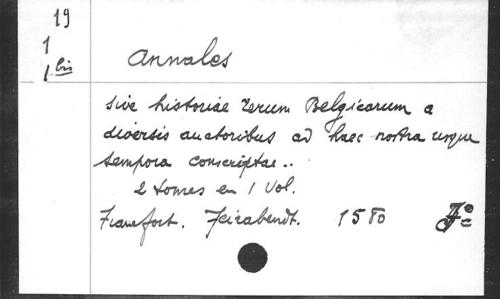 19
1
1 bis
Annales
sive historiae rerum Belgicarum a
diversis auctoribus ad haec nostra usque
tempora conscriptae..
2 tomes en 1 vol.
Francfort. Feirabendt. 1580 Fo